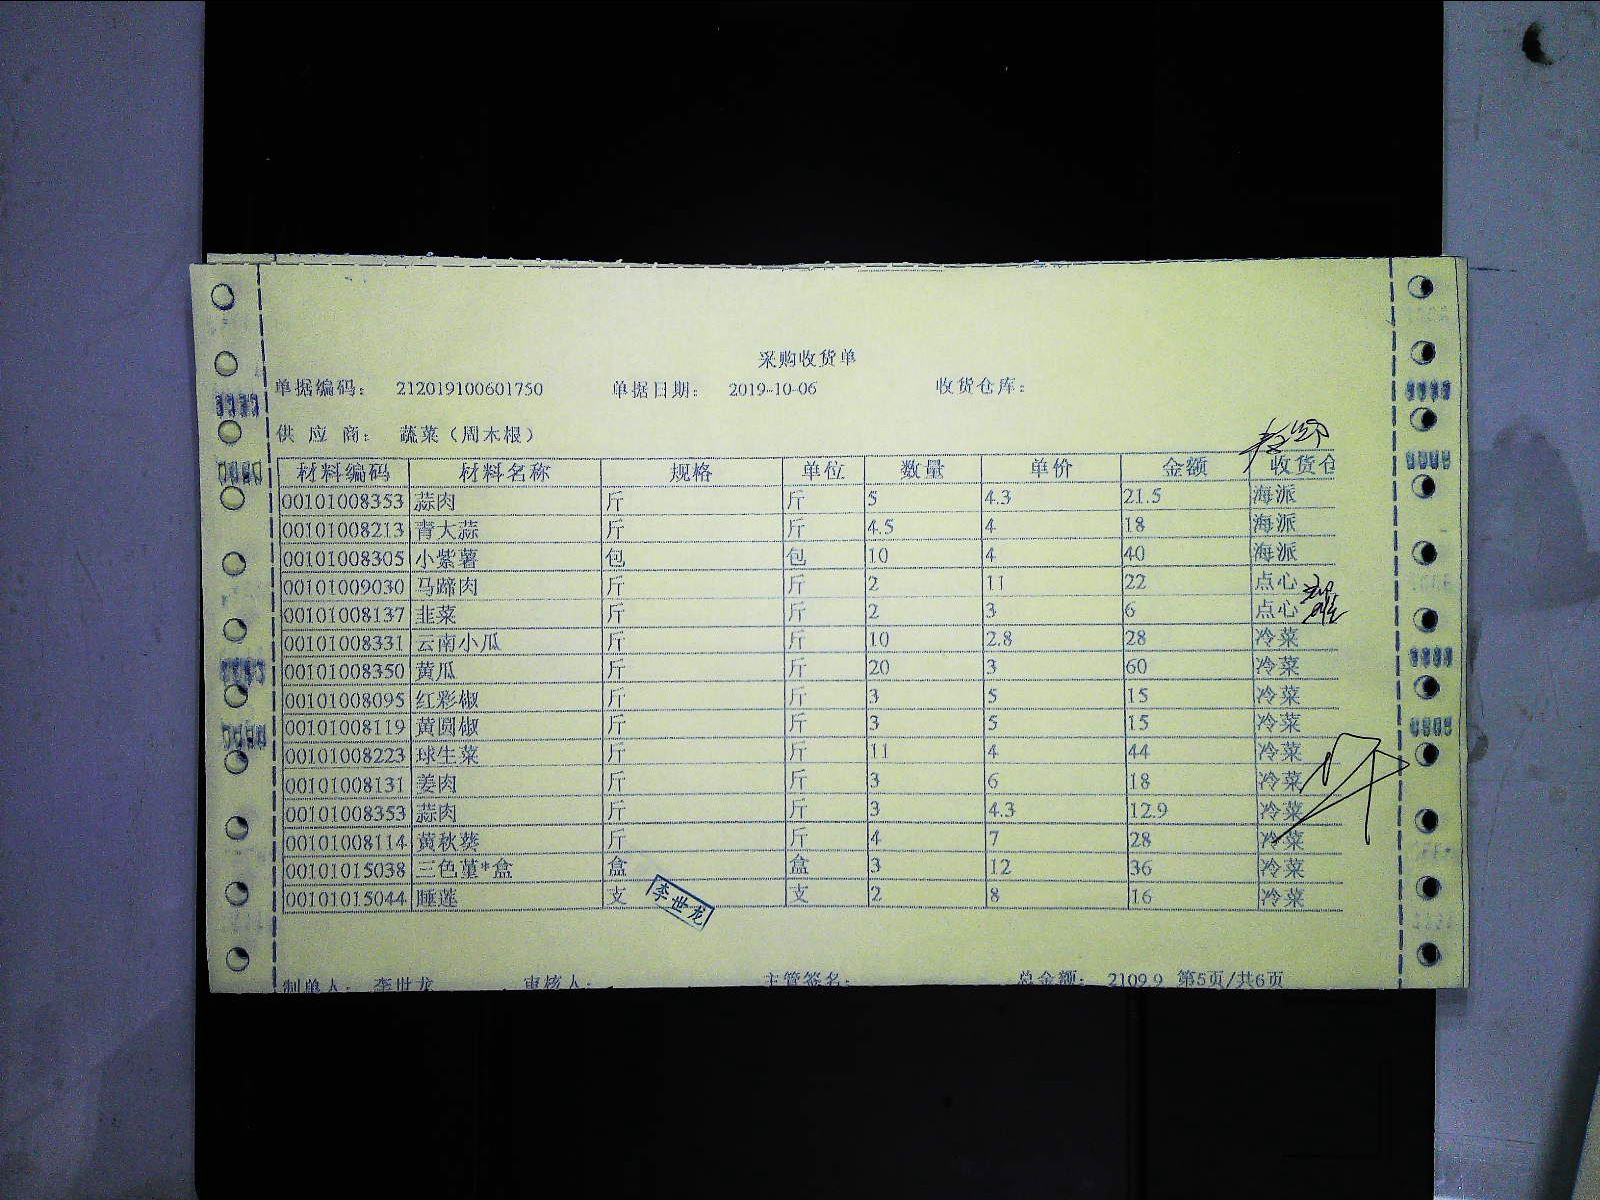 采购收货单
单据编码： 212019100601750 单据日期： 2019-10-06 收货仓库：
供 应 商： 蔬菜（周木根）
材料编码 材料名称 规格 单位 数量 单价 金额 收货仓
00101008353 蒜肉 斤 斤 5 4.3 21.5 海派
00101008213 青大蒜 斤 斤 4.5 4 18 海派
00101008305 小紫薯 包 包 10 4 40 海派
00101009030 马蹄肉 斤 斤 2 11 22 点心
00101008137 韭菜 斤 斤 2 3 6 点心
00101008331 云南小瓜 斤 斤 10 2.8 28 冷菜
00101008350 黄瓜 斤 斤 20 3 60 冷菜
00101008095 红彩椒 斤 斤 3 5 15 冷菜
00101008119 黄圆椒 斤 斤 3 5 15 冷菜
00101008223 球生菜 斤 斤 11 4 44 冷菜
00101008131 姜肉 斤 斤 3 6 18 冷菜
00101008353 蒜肉 斤 斤 3 4.3 12.9 冷菜
00101008114 黄秋葵 斤 斤 4 7 28 冷菜
00101015038 三色堇*盒 盒 盒 3 12 36 冷菜
00101015044 睡莲 支 支 2 8 16 冷菜
李世龙
制单人： 李世龙 审核人： 主管签名： 总金额： 2109.9 第5页/共6页